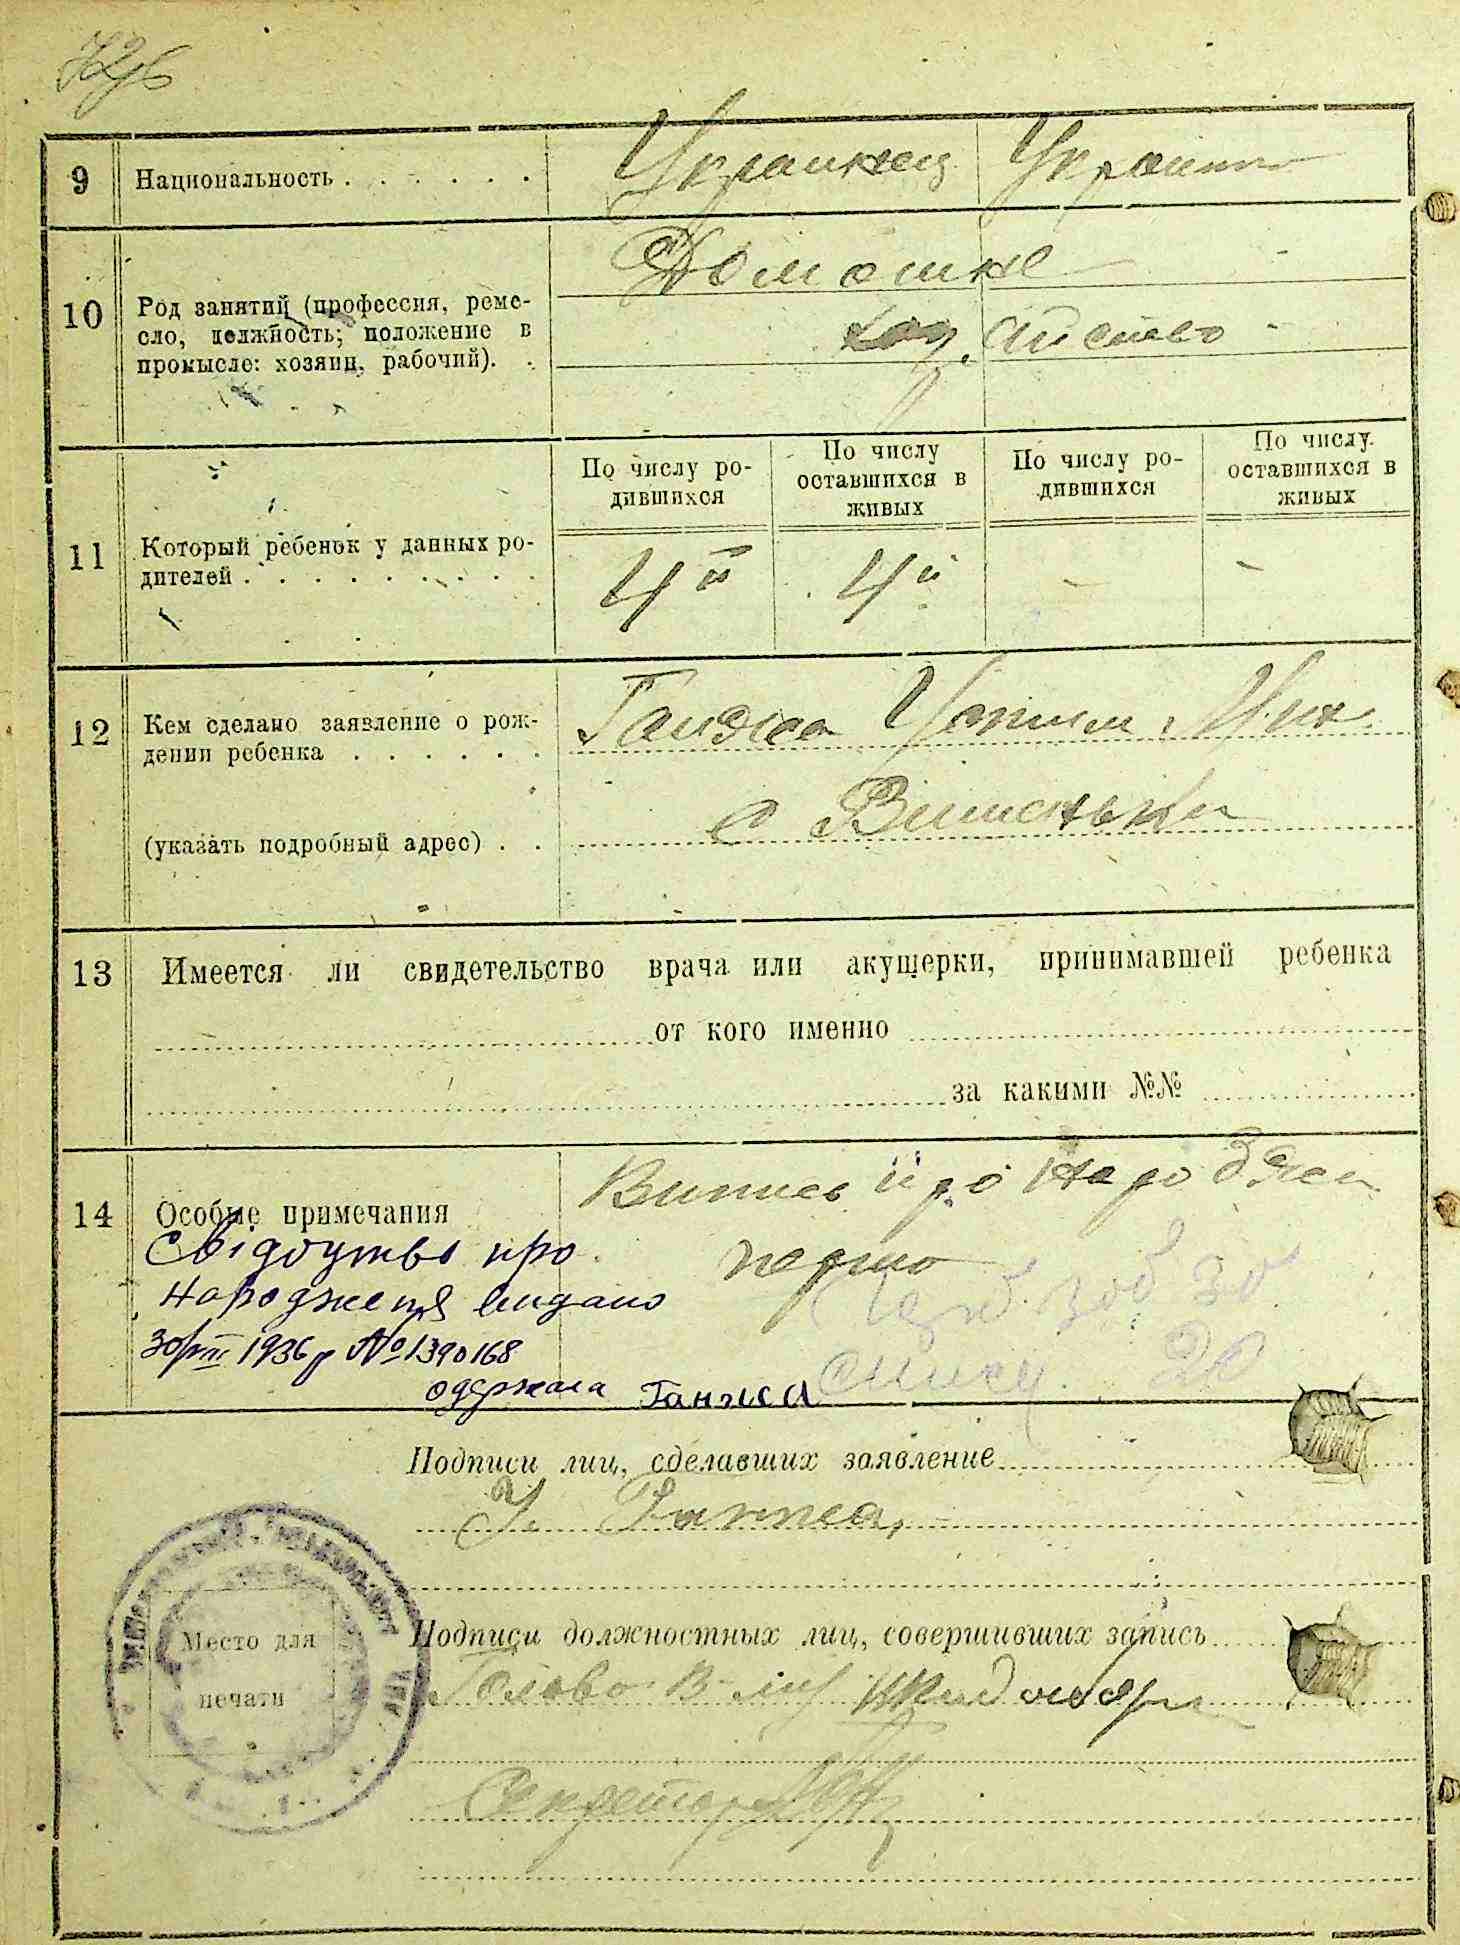 9 Национальность . . . . . .
Украинец
10 Род занятий (профессия, реме-
сло, должность; положение в
промысле: хозяин, рабочий). .
Домашне
11 Который ребенок у данных ро-
дителей . . . . . . . . .
По числу ро-
дившихся
По числу
оставшихся в
живых
По числу ро-
дившихся
По числу
оставшихся в
живых
4й 4й - -
12 Кем сделано заявление о рож-
дении ребенка . . . . . .
(указать подробный адрес) . .
Устим Мих.
с Вишеньки
13 Имеется ли свидетельство врача или акушерки, принимавшей ребенка
от кого именно
за какими №№
14 Особые примечания
Випись про
перто
Свідоцтво про
Народження видано
30/III 1936 р №1390168
одержала Ганжа
Подписи лиц, сделавших заявление
У. Ганжа
Место для
печати
Подписи должностных лиц, совершивших запись
Голова
Секретар